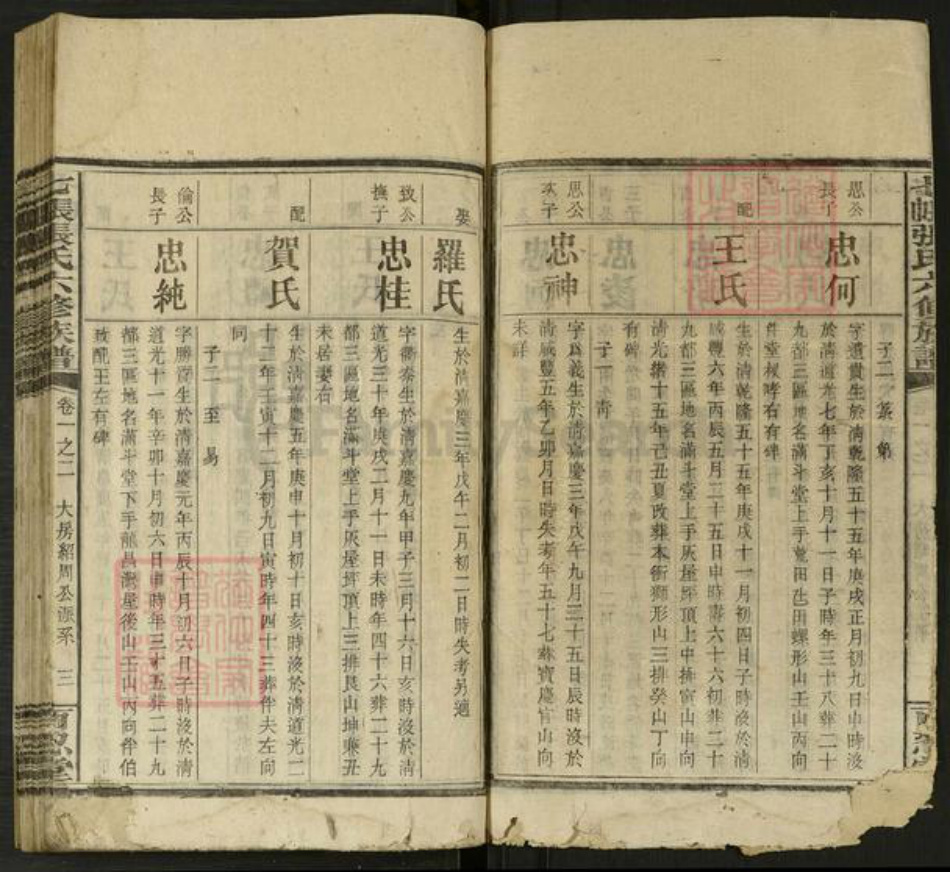 七帳張氏六修族譜
思公長子
忠何
字遺貴生於清乾隆五十五年庚戌正月初九日申時沒
於清道光七年丁亥十月十一日子時年三十八葬二十
九都三區地名滿斗堂上手竟田乸田螺形山壬山丙向
伴堂叔哮右有碑
子二
配
王氏
生於清乾隆五十五年庚戌十一月初四日子時沒於清
咸豐六年丙辰五月二十五日申時壽六十六初葬二十
九都三區地名滿斗堂上手灰屋坪頂上中排寅山申向
清光緒十五年己丑夏改葬本衝獅形山三排癸山丁向
有碑
子一 靑
思公次子
忠神
字爲義生於清嘉慶三年戊午九月二十五日辰時沒於
清咸豐五年乙卯月日時失考年五十七葬寶慶官山向
未詳
娶
羅氏
生於清嘉慶三年戊午二月初二日時失考另適
致公撫子
忠桂
字衢泰生於清嘉慶九年甲子三月十六日亥時沒於清
道光三十年庚戌二月十一日未時年四十六葬二十九
都三區地名滿斗堂上手灰屋坪頂上三排艮山坤兼丑
未居妻右
配
賀氏
生於清嘉慶五年庚申十月初十日亥時沒於清道光二
十二年壬寅十二月初九日寅時年四十三葬伴夫左向
同
子二 至 易
倫公長子
忠純
字勝資生於清嘉慶元年丙辰十月初六日子時沒於清
道光十一年辛卯十月初六日申時年三十五葬二十九
都三區地名滿斗堂下手龍昌灣屋後山壬山丙向伴伯
致配王左有碑
七帳張氏六修族譜 卷一之二 大房紹周公派系 三